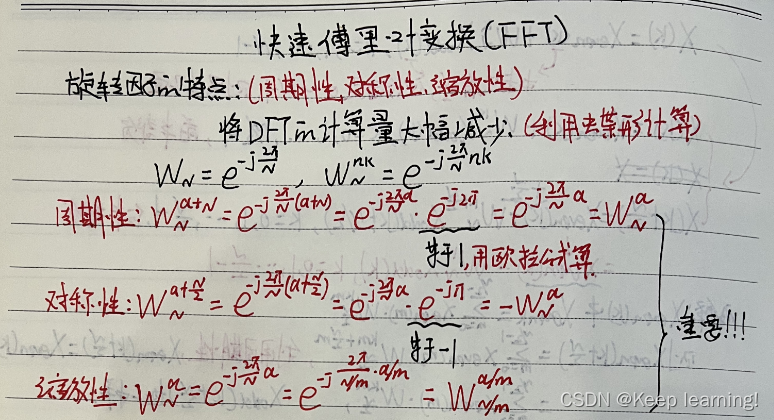 快速傅里叶变换(FFT)
旋转因子的特点:(周期性,对称性、缩放性)
将DFT的计算量大幅减少.(利用去蝶形计算)
W_N = e^{-j\frac{2π}{N}}, W_N^{nk} = e^{-j\frac{2π}{N}nk}
周期性: W_N^{a+N} = e^{-j\frac{2π}{N}(a+N)} = e^{-j\frac{2π}{N}a} · e^{-j2π} = e^{-j\frac{2π}{N}a} = W_N^a
等于1,用欧拉公式算.
对称性: W_N^{a+\frac{N}{2}} = e^{-j\frac{2π}{N}(a+\frac{N}{2})} = e^{-j\frac{2π}{N}a} · e^{-jπ} = -W_N^a
重要!!!
等于-1
缩放性: W_N^a = e^{-j\frac{2π}{N}a} = e^{-j\frac{2π}{N/m}·a/m} = W_{N/m}^{a/m}
CSDN @Keep learning!